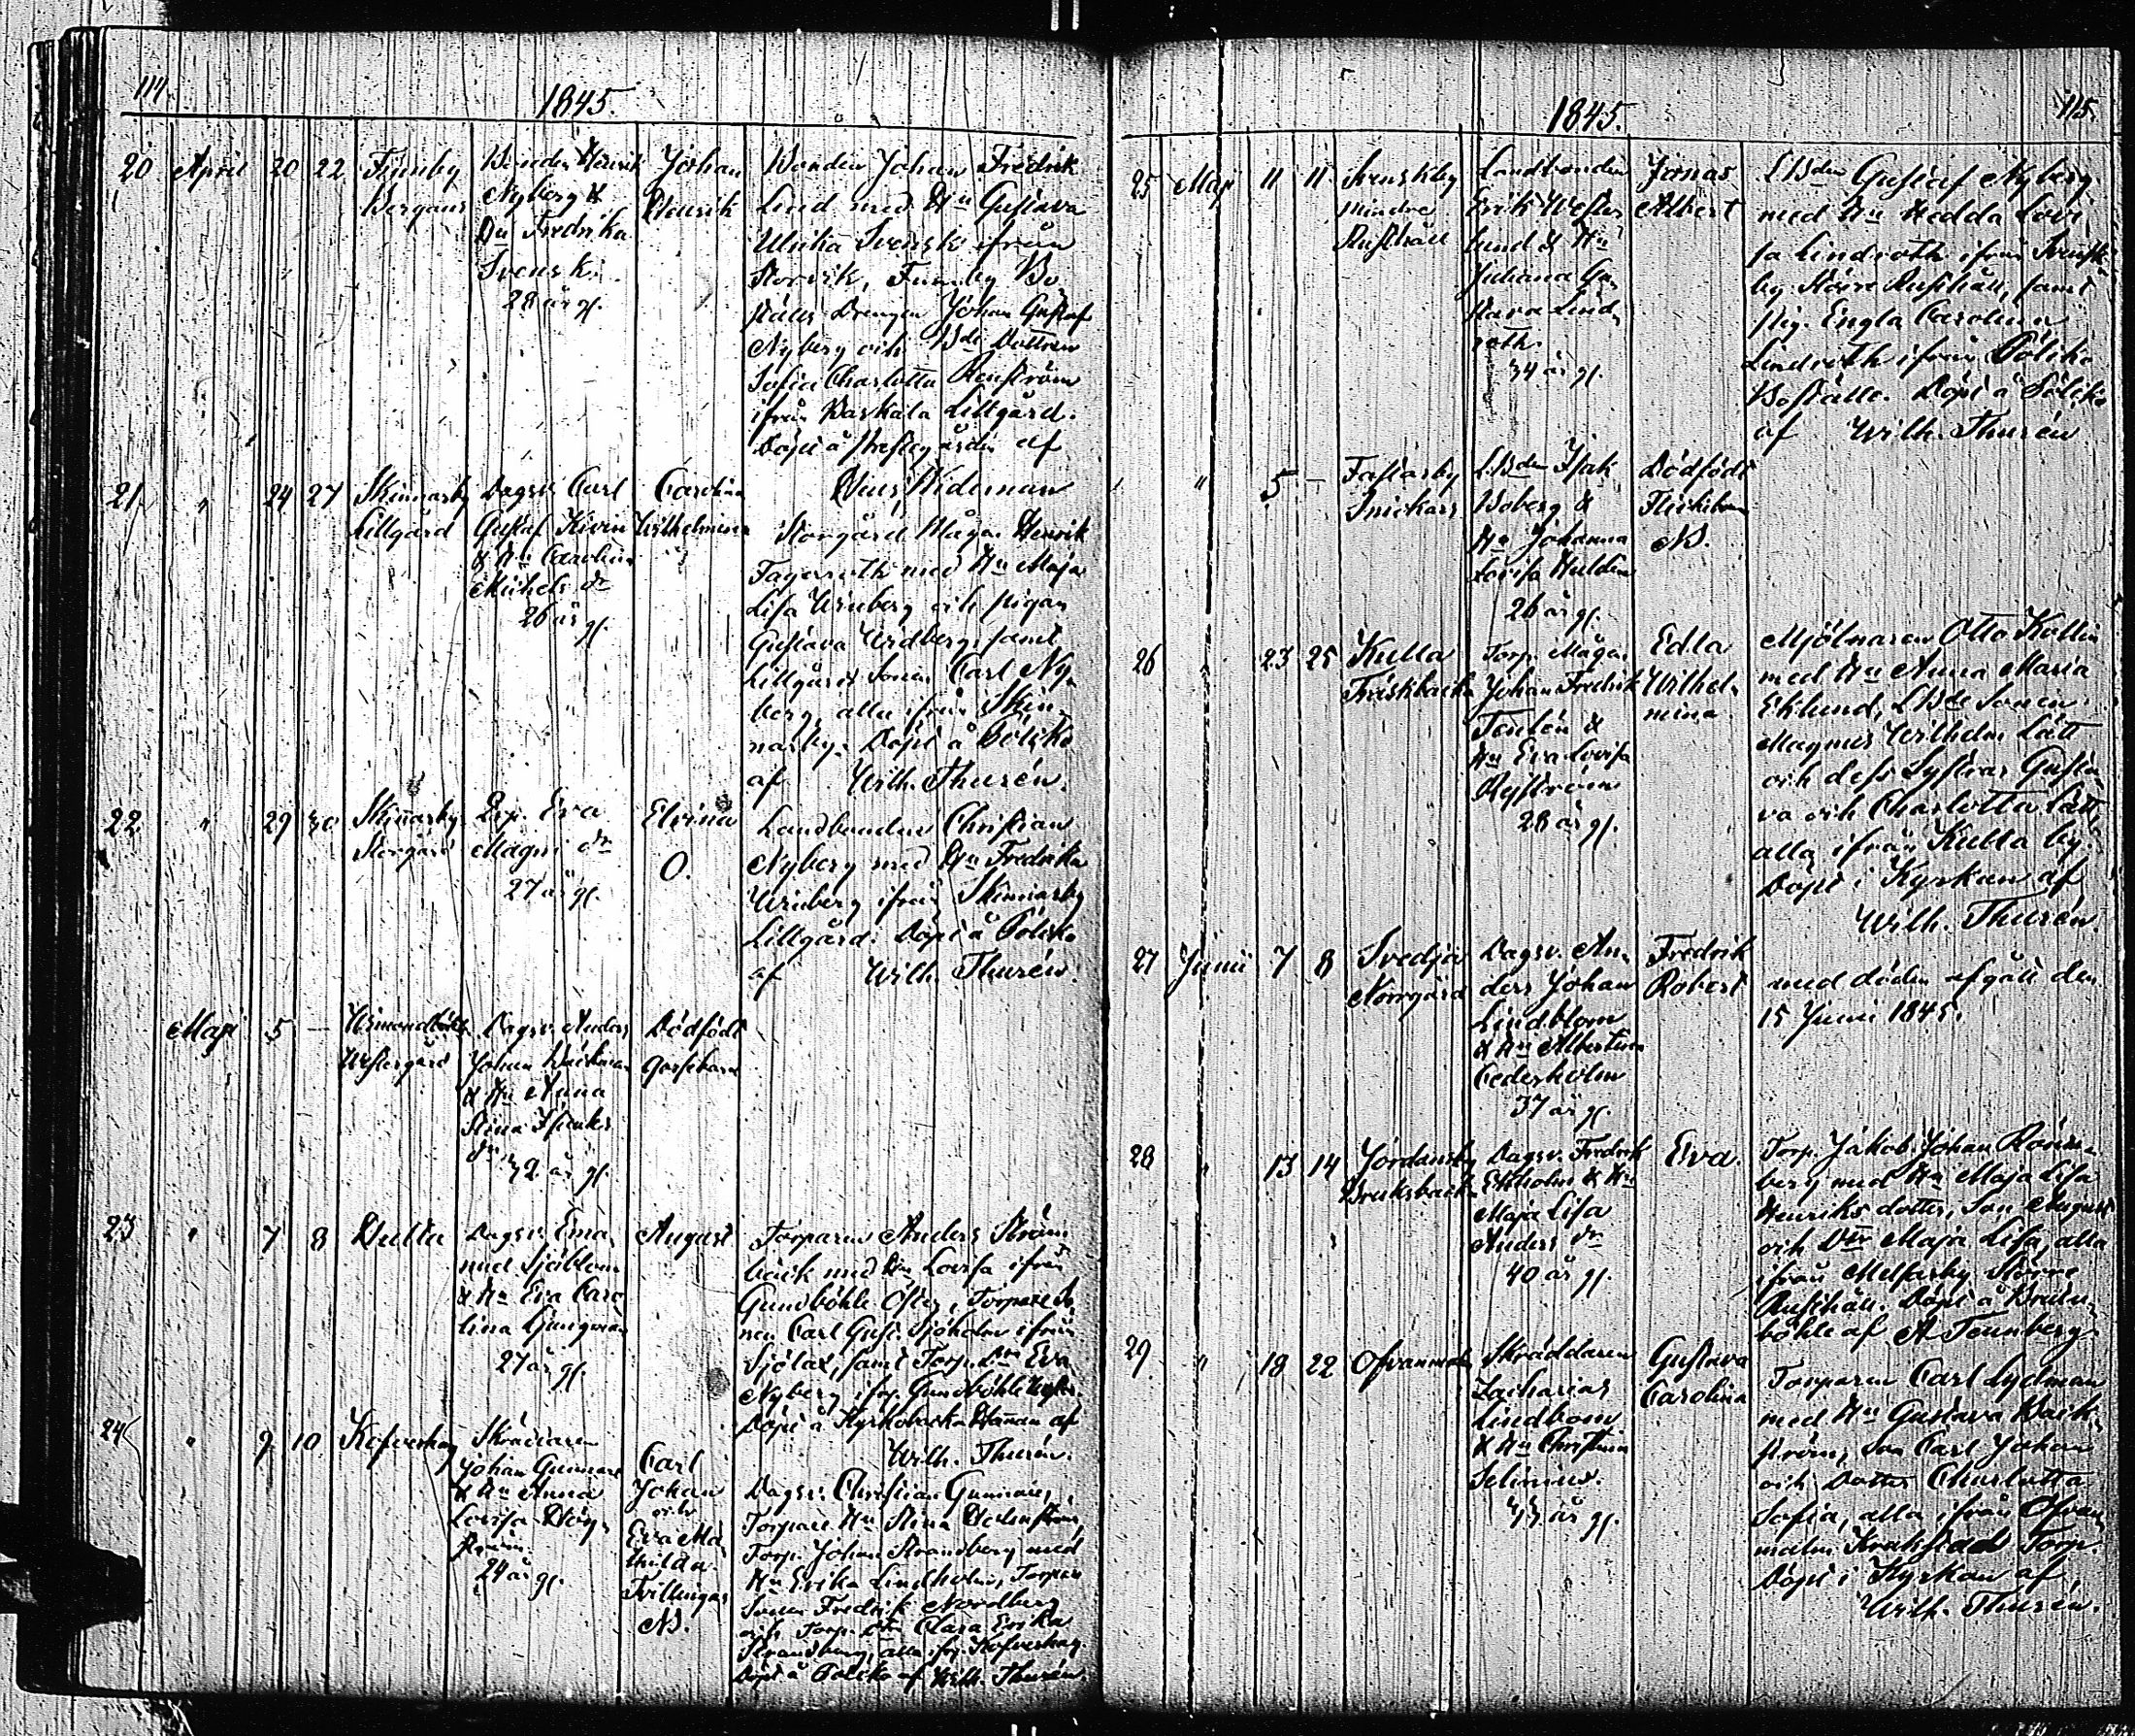 114.
1845.
20 April 20 22 Finnby Bergans
Bonden Henrik
Nyberg &
Hu Fredrika
Svensk.
28 år gl.
Johan
Henrik
Bonden Johan Fredrik
Lind med Hu Gustava
Ulrika Svensk ifrån
Storvik, Finnby Bo
ställs Drengen Johan Gustaf
Nyberg och Bde Dottren
Sofia Charlotta Renström
ifrån Kaskala Lillgård.
Döpt å Prestegården af
Widerman
21 " 24 27 Skinnarby
Lillgård
Dagsv. Carl
Gustaf Kivin
& Hu Carolina
Michels dr
26 år gl.
Carolina
Wilhelmina
Storgård Mågen Henrik
Fagerroth med Hu Maja
Lisa Winberg och pigan
Gustava Urdberg, samt
Lillgård Sonen Carl Ny,
berg, alla ifrån Skin,
narby. Döpt å Bölsko
af Wilh. Thurén.
22 " 29 30 Skinnarby
Storgård
Pig. Eva
Magni dr
27 år gl.
Elvina
O.
Landbonden Christian
Nyberg med Hu Fredrika
Winberg ifrån Skinnarby
Lillgård. Döpt å Bölsko
af Wilh. Thurén.
Maji 5 –
Westergård
Dagsv. Anders
Johan
& Hu Anna
Stina Isaaks
dr 42 år gl.
Dödfödt
Gossebarn
23 " 7 8 Hulta
Dagsv. Ema,
nuel Sjöblom
& Hu Eva Caro
lina Ljungman
27 år gl.
August
Torparen Anders Ström
bäck med Hu Lovisa ifrån
Gundböhle Öster, Torpare So,
nen Carl Gust. Sjöholm ifrån
Sjölax, samt Torp. Dtr Eva
Nyberg ifrp. Gundböhle Wester.
Döpt å Kyrkobacka af
Wilh. Thurén.
24 " 9 10 Kofverhag
Skräddaren
Johan Gunnare
& Hu Anna
Lovisa Hög,
ström.
24 år gl.
Carl
Johan
och
Eva Ma,
thilda.
Tvillingar
NB.
Dagsv. Christian Gunnare,
Torpare Hu Stina Holmström,
Torp. Johan Strandberg med
Hu Erika Lindholm, Torpare
Sonen Fredrik Nordberg
och Torp. Dtr Clara Erika
Strandberg, alla ifr. Kofverhag.
Döpt å Bölsko af Wilh. Thurén
1845.
115.
25 Maji 11 11 Svenskby
Mindre
Rusthåll
Landbonden
Erik Wester
lund & Hu
Juliana Gu,
stava Lind,
roth.
34 år gl.
Jonas
Albert
LBden Gustaf Nyberg
med Hu Hedda Lovi,
sa Lindroth ifrån Svensk
by Större Rusthåll, samt
Pig. Engla Carolina
Lindroth ifrån Bölsko
Boställe. Döpt å Bölsko
af Wilh. Thurén
" 5 – Fastarby
Snickars
LBden Isak
Boberg &
Hu Johanna
Lovisa Huldin
26 år gl.
Dödfödt
Flickebarn
NB.
26 " 23 25 Kulla
Friskbacka
Torp. Mågen
Johan Fredrik
Tenlén &
Hu Eva Lovisa
Nyström
28 år gl.
Edla
Wilhel,
mina
Mjölnaren Otto Kullin
med Hu Anna Maria
Eklund, LBde Sonen
Magnus Wilhelm Lätt
och dess Systrar Gusta,
va och Charlotta Lätt
alla ifrån Kulla by.
Döpt i Kyrkan af
Wilh. Thurén.
27 Junii 7 8 Svedja
Norrgård
Dagsv. An,
ders Johan
Lindblom
& Hu Albertina
Cederholm
37 år gl.
Fredrik
Robert
med döden afgått den
15 Junii 1845.
28 " 13 14 Jordansby
Bruksbacka
Dagsv. Fredrik
Ekholm & Hu
Maja Lisa
Anders dr
40 år gl.
Eva.
Torp. Jakob Johan Rönn,
berg med Hu Maja Lisa
Henriks dotter, Son August
och Dtr Maja Lisa, alla
ifrån Melfarby Större
Rusthåll. Döpt å
böhle af A. Tennberg.
29. " 18 22 Ofvanmalm
Skräddaren
Zacharias
Lindbom
& Hu Christina
Selinius.
43 år gl.
Gustava
Carolina
Torparen Carl Lydman
med Hu Gustava Back,
ström, Son Carl Johan
och Dotter Charlotta
Sofia, alla ifrån Ofvan,
malm Krakstad Torp.
Döpt i Kyrkan af
Wilh. Thurén.